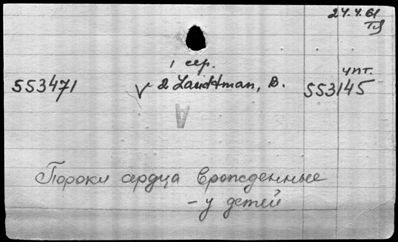 24.4.61
1 сер.
чит.
553471 √ 2 Landtman, B. 553145
V
Пороки сердца врожденные
- у детей